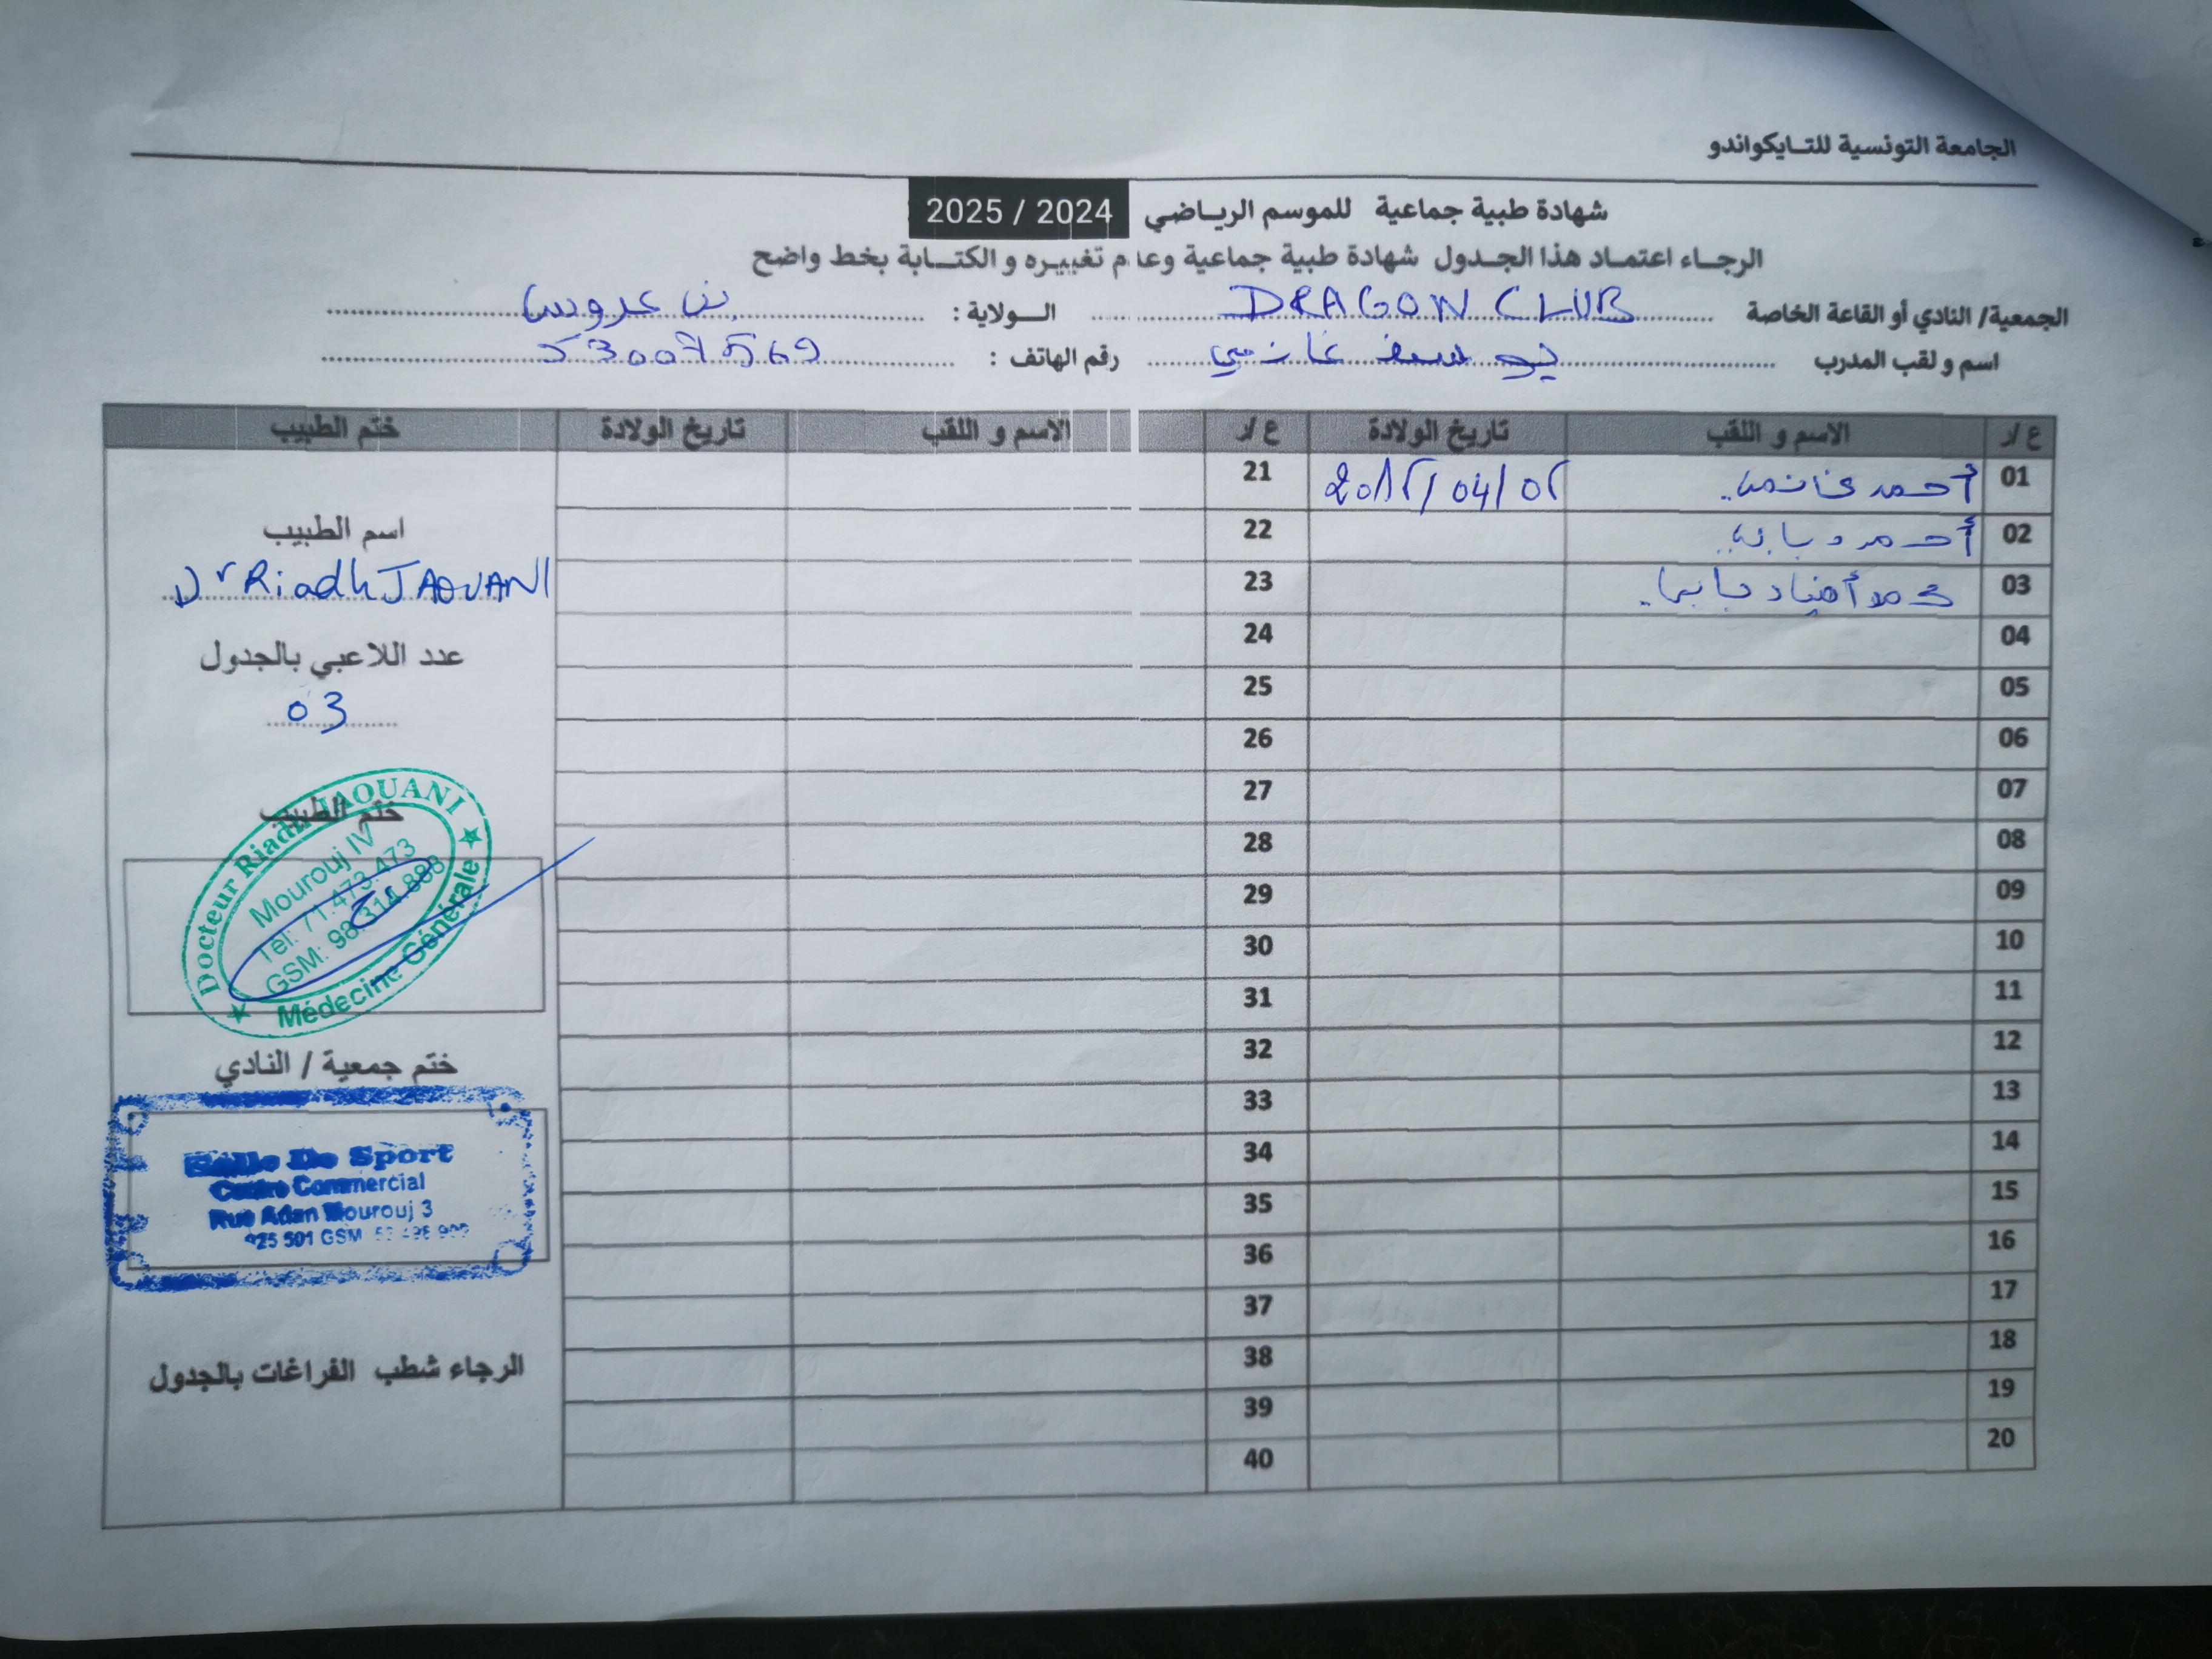 الجامعة التونسية للتـايكواندو
شهادة طبية جماعية للموسم الرياضي 2024 / 2025
الرجـاء اعتمـاد هذا الجـدول شهادة طبية جماعية وعد م تغييـره و الكتـابة بخط واضح
الجمعية/ النادي أو القاعة الخاصة DRAGON CLUB الـولاية : بن عروس
اسم و لقب المدرب يوسف غانمي رقم الهاتف : 53007569
ع/ر الاسم و اللقب تاريخ الولادة ع/ر الاسم و اللقب تاريخ الولادة ختم الطبيب
01 أحمد غانمي 21
02 أحمد 22
03 محمد 23
04 24
05 25
06 26
07 27
08 28
09 29
10 30
11 31
12 32
13 33
14 34
15 35
16 36
17 37
18 38
19 39
20 40
اسم الطبيب
Dr Riadh JAOUANI
عدد اللاعبي بالجدول
03
ختم الطبيب
Docteur Riadh JAOUANI
Mourouj IV
Tél: 71.473.473
GSM: 98.314.888
Médecine Générale
ختم جمعية / النادي
Salle De Sport
Centre Commercial
Rue Adan Mourouj 3
925 501 GSM
الرجاء شطب الفراغات بالجدول